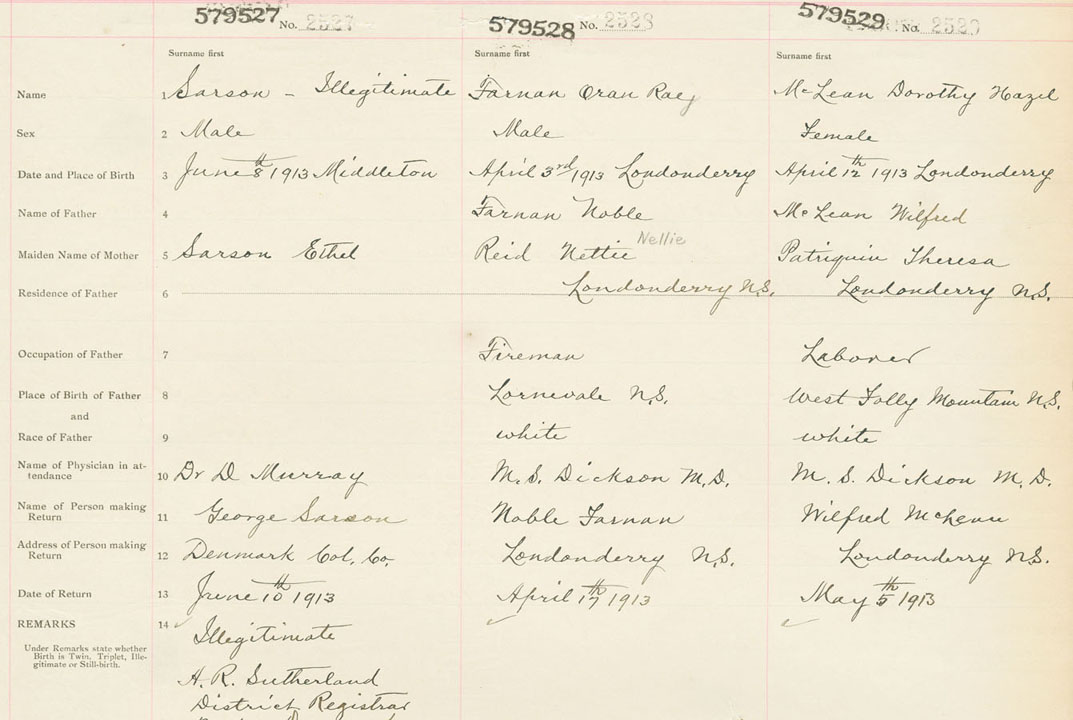 579527 No. 2527 579528 No. 2528 579529 No. 2529
Surname first Surname first Surname first
Name 1 Sarson - Illegitimate Farnan Oran Ray McLean Dorothy Hazel
Sex 2 Male Male Female
Date and Place of Birth 3 June 8th 1913 Middleton April 3rd 1913 Londonderry April 12th 1913 Londonderry
Name of Father 4 Farnan Noble McLean Wilfred
Nellie
Maiden Name of Mother 5 Sarson Ethel Reid Nettie Patriquin Theresa
Residence of Father 6 Londonderry N.S. Londonderry N.S.
Occupation of Father 7 Fireman Laborer
Place of Birth of Father 8 Lornevale N.S. West Folly Mountain N.S.
and
Race of Father 9 white white
Name of Physician in at-
tendance 10 Dr D Murray M.S. Dickson M.D. M.S. Dickson M.D.
Name of Person making
Return 11 George Sarson Noble Farnan Wilfred McLean
Address of Person making
Return 12 Denmark Col. Co. Londonderry N.S. Londonderry N.S.
Date of Return 13 June 10th 1913 April 17th 1913 May 5th 1913
REMARKS 14 Illegitimate
Under Remarks state whether
Birth is Twin, Triplet, Ille-
gitimate or Still-birth.
H. R. Sutherland
District Registrar